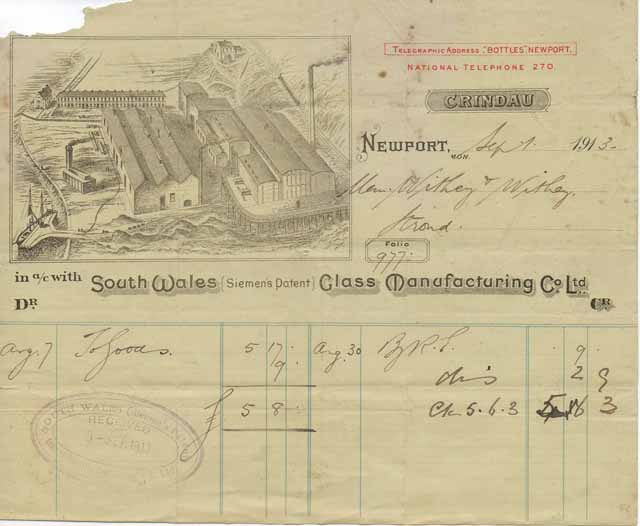 TELEGRAPHIC ADDRESS "BOTTLES" NEWPORT.
NATIONAL TELEPHONE 270.
CRINDAU
NEWPORT, MON. Sept 1. 1913.
Withey & Withey.
Stroud.
Folio
977.
in a/c with SOUTH WALES (SIEMEN'S PATENT) GLASS MANUFACTURING CO LTD.
DR CR
Aug. 7 To Goods. 5 17 Aug 30 By R.S. 9
9 dis 2 9
£ 5 8 Ck 5.6.3 5 6 3
SOUTH WALES
RECEIVED